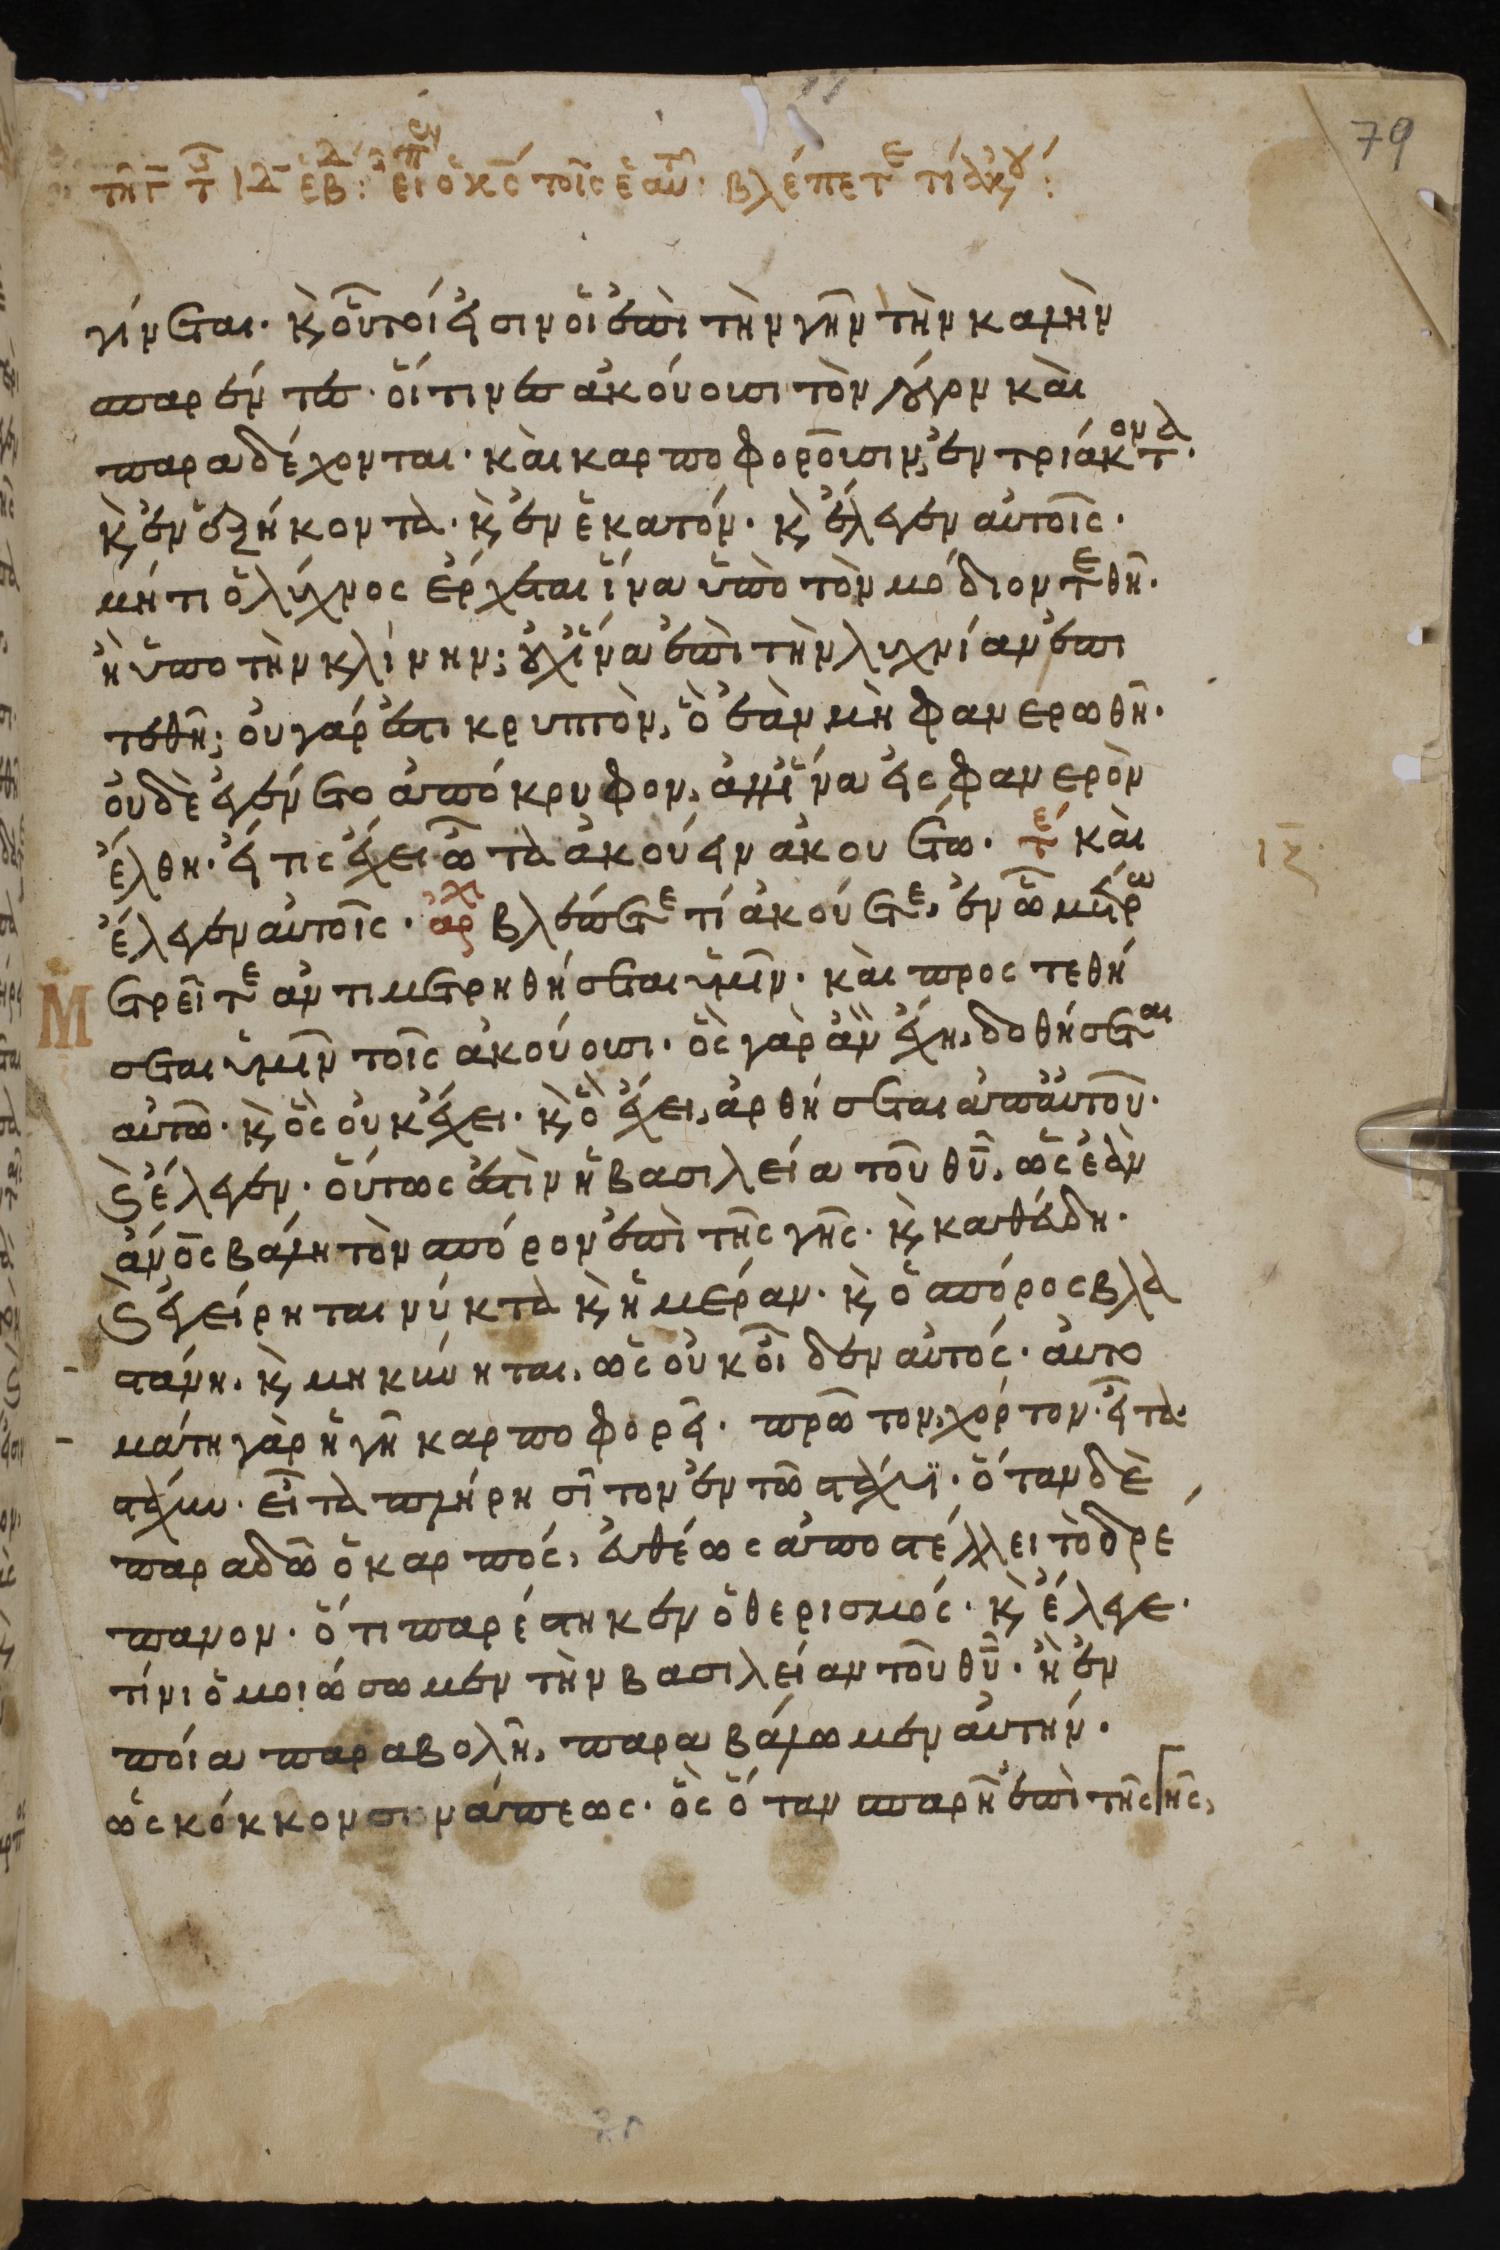 79
τῆ Γ τ ΙΔ ἑβ: εἶπεν ὁ κς τοῖς ἑαυτ: βλέπετε τί ἀκού:
γίνεται· κ οὗτοί εἰσιν οἱ ἐπὶ τὴν γῆν τὴν καλὴν
σπαρέντες· οἵτινες ἀκούουσι τὸν λόγον καὶ
παραδέχονται· καὶ καρποφοροῦσιν, ἐν τριάκοντα·
κ ἐν ἑξήκοντα· κ ἐν ἑκατόν· κ ἔλεγεν αὐτοῖς·
μήτι ὁ λύχνος ἔρχεται ἵνα ὑπὸ τὸν μόδιον τεθῆ·
ἢ ὑπο τὴν κλίνην; οὐχ ἵνα ἐπὶ τὴν λυχνίαν ἐπι
τεθῆ; οὐ γάρ ἐστι κρυπτὸν, ὃ ἐὰν μὴ φανερωθῆ·
οὐδὲ ἐγένετο ἀπόκρυφον, ἀλλ' ἵνα εἰς φανερὸν
ἔλθη· εἴ τις ἔχει ὦτα ἀκούειν ἀκουέτω· τέ καὶ
ἔλεγεν αὐτοῖς· ἀρχ βλέπετε τί ἀκούετε, ἐν ὧ μέτρω
ΙΖ
μετρεῖτε ἀντιμετρηθήσεται ὑμῖν· καὶ προστεθή
Μ
σεται ὑμῖν τοῖς ἀκούουσι· ὃς γὰρ ἂν ἔχη, δοθήσεται
αὐτῶ· κ ὃς οὐκ ἔχει· κ ὃ ἔχει, ἀρθήσεται ἀπ' αὐτοῦ·
κ ἔλεγεν· οὕτως ἐστὶν ἡ βασιλεία τοῦ θυ, ὡς ἐὰν
ἀνος βάλη τὸν σπόρον ἐπὶ τῆς γῆς· κ καθεύδη·
κ ἐγείρηται νύκτα κ ἡμέραν· κ ὁ σπόρος βλα
στάνη, κ μηκύνηται, ὡς οὐκ οἶδεν αὐτός· αὐτο
μάτη γὰρ ἡ γῆ καρποφορεῖ· πρῶτον, χόρτον· εἶτα
στάχυν· εἶτα πλήρη σῖτον ἐν τῶ στάχυϊ· ὅταν δὲ
παραδῶ ὁ καρπός, εὐθέως ἀποστέλλει τὸ δρέ
πανον· ὅτι παρέστηκεν ὁ θερισμός· κ ἔλεγε·
τίνι ὁμοιώσωμεν τὴν βασιλείαν τοῦ θυ· ἢ ἐν
ποία παραβολῆ, παραβάλωμεν αὐτήν·
ὡς κόκκον σινάπεως· ὃς ὅταν σπαρῆ ἐπὶ τῆς γῆς,